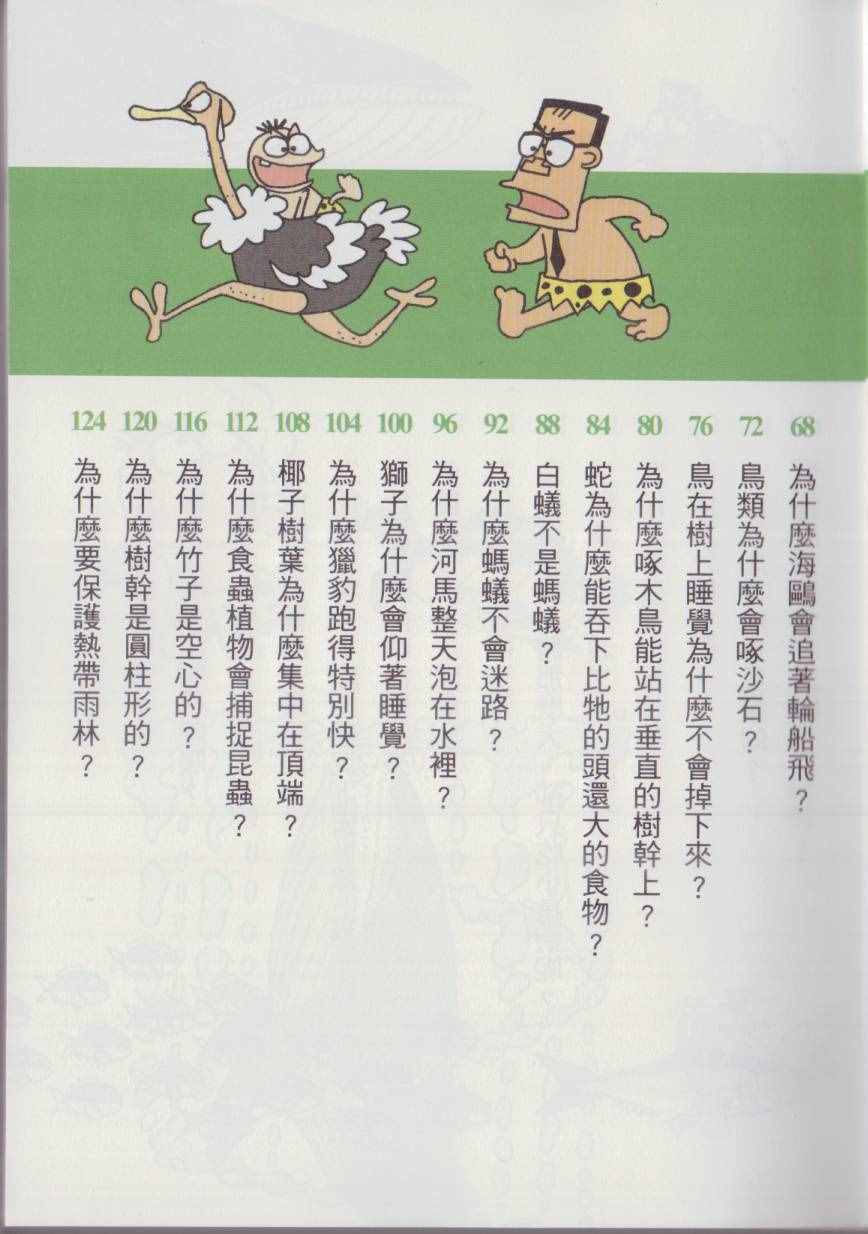 68 為什麼海鷗會追著輪船飛？
72 鳥類為什麼會啄沙石？
76 鳥在樹上睡覺為什麼不會掉下來？
80 為什麼啄木鳥能站在垂直的樹幹上？
84 蛇為什麼能吞下比牠的頭還大的食物？
88 白蟻不是螞蟻？
92 為什麼螞蟻不會迷路？
96 為什麼河馬整天泡在水裡？
100 獅子為什麼會仰著睡覺？
104 為什麼獵豹跑得特別快？
108 椰子樹葉為什麼集中在頂端？
112 為什麼食蟲植物會捕捉昆蟲？
116 為什麼竹子是空心的？
120 為什麼樹幹是圓柱形的？
124 為什麼要保護熱帶雨林？